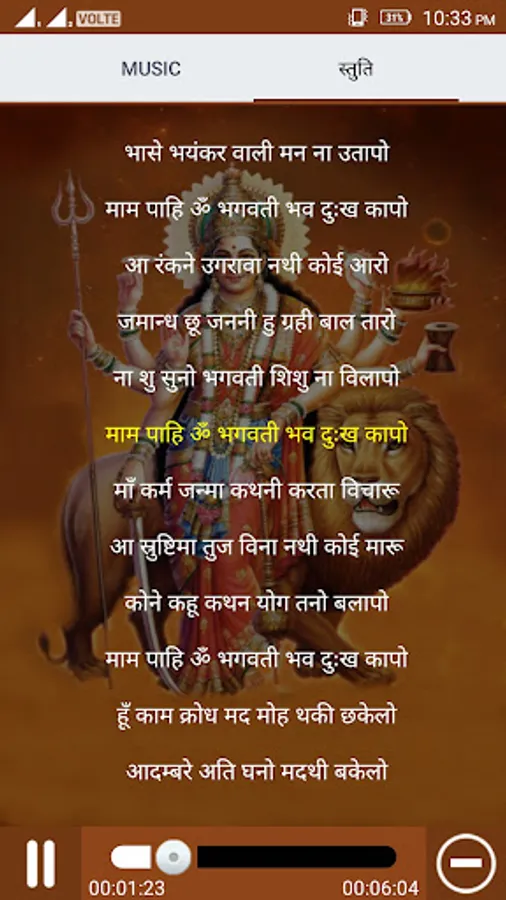 VOLTE 31% 10:33 PM
MUSIC स्तुति
भासे भयंकर वाली मन ना उतापो
माम पाहि ॐ भगवती भव दुःख कापो
आ रंकने उगरावा नथी कोई आरो
जमान्ध छू जननी हु ग्रही बाल तारो
ना शु सुनो भगवती शिशु ना विलापो
माम पाहि ॐ भगवती भव दुःख कापो
माँ कर्म जन्मा कथनी करता विचारू
आ स्रुष्टिमा तुज विना नथी कोई मारू
कोने कहू कथन योग तनो बलापो
माम पाहि ॐ भगवती भव दुःख कापो
हूँ काम क्रोध मद मोह थकी छकेलो
आदम्बरे अति घनो मदथी बकेलो
00:01:23 00:06:04